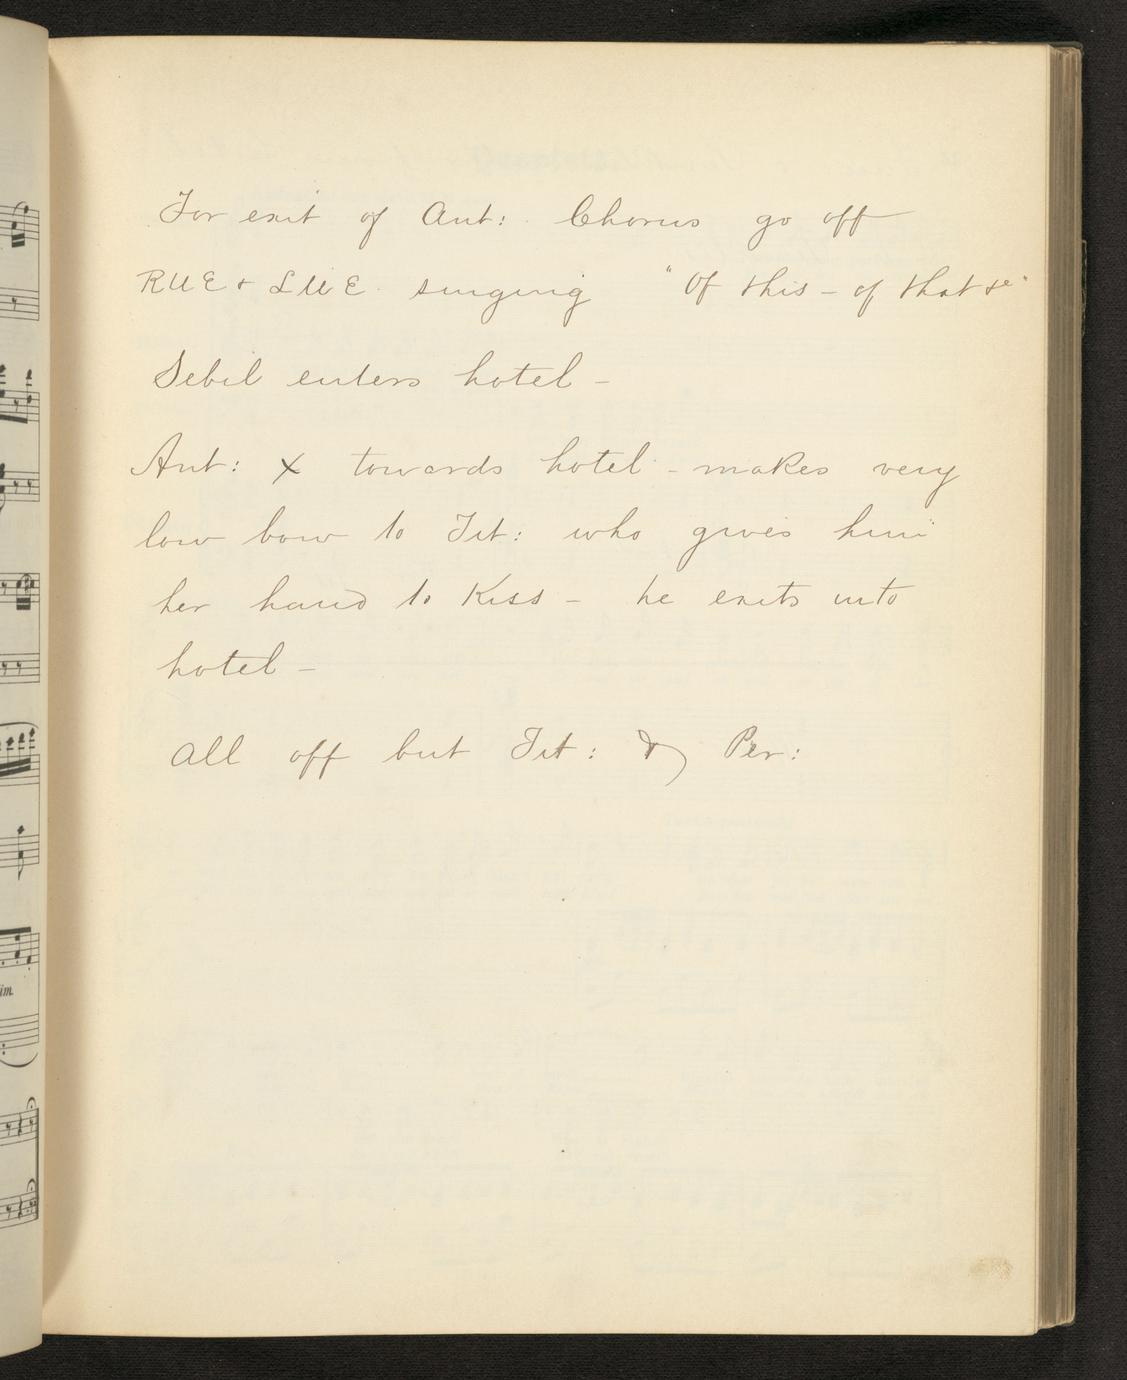 For exit of Ant: Chorus go off
RUE & LUE singing "Of this – of that &c"
Sebil enters hotel –
Ant: X towards hotel – makes very
low bow to Tit: who gives him
her hand to Kiss – he exits into
hotel –
All off but Tit: & Per:
im.